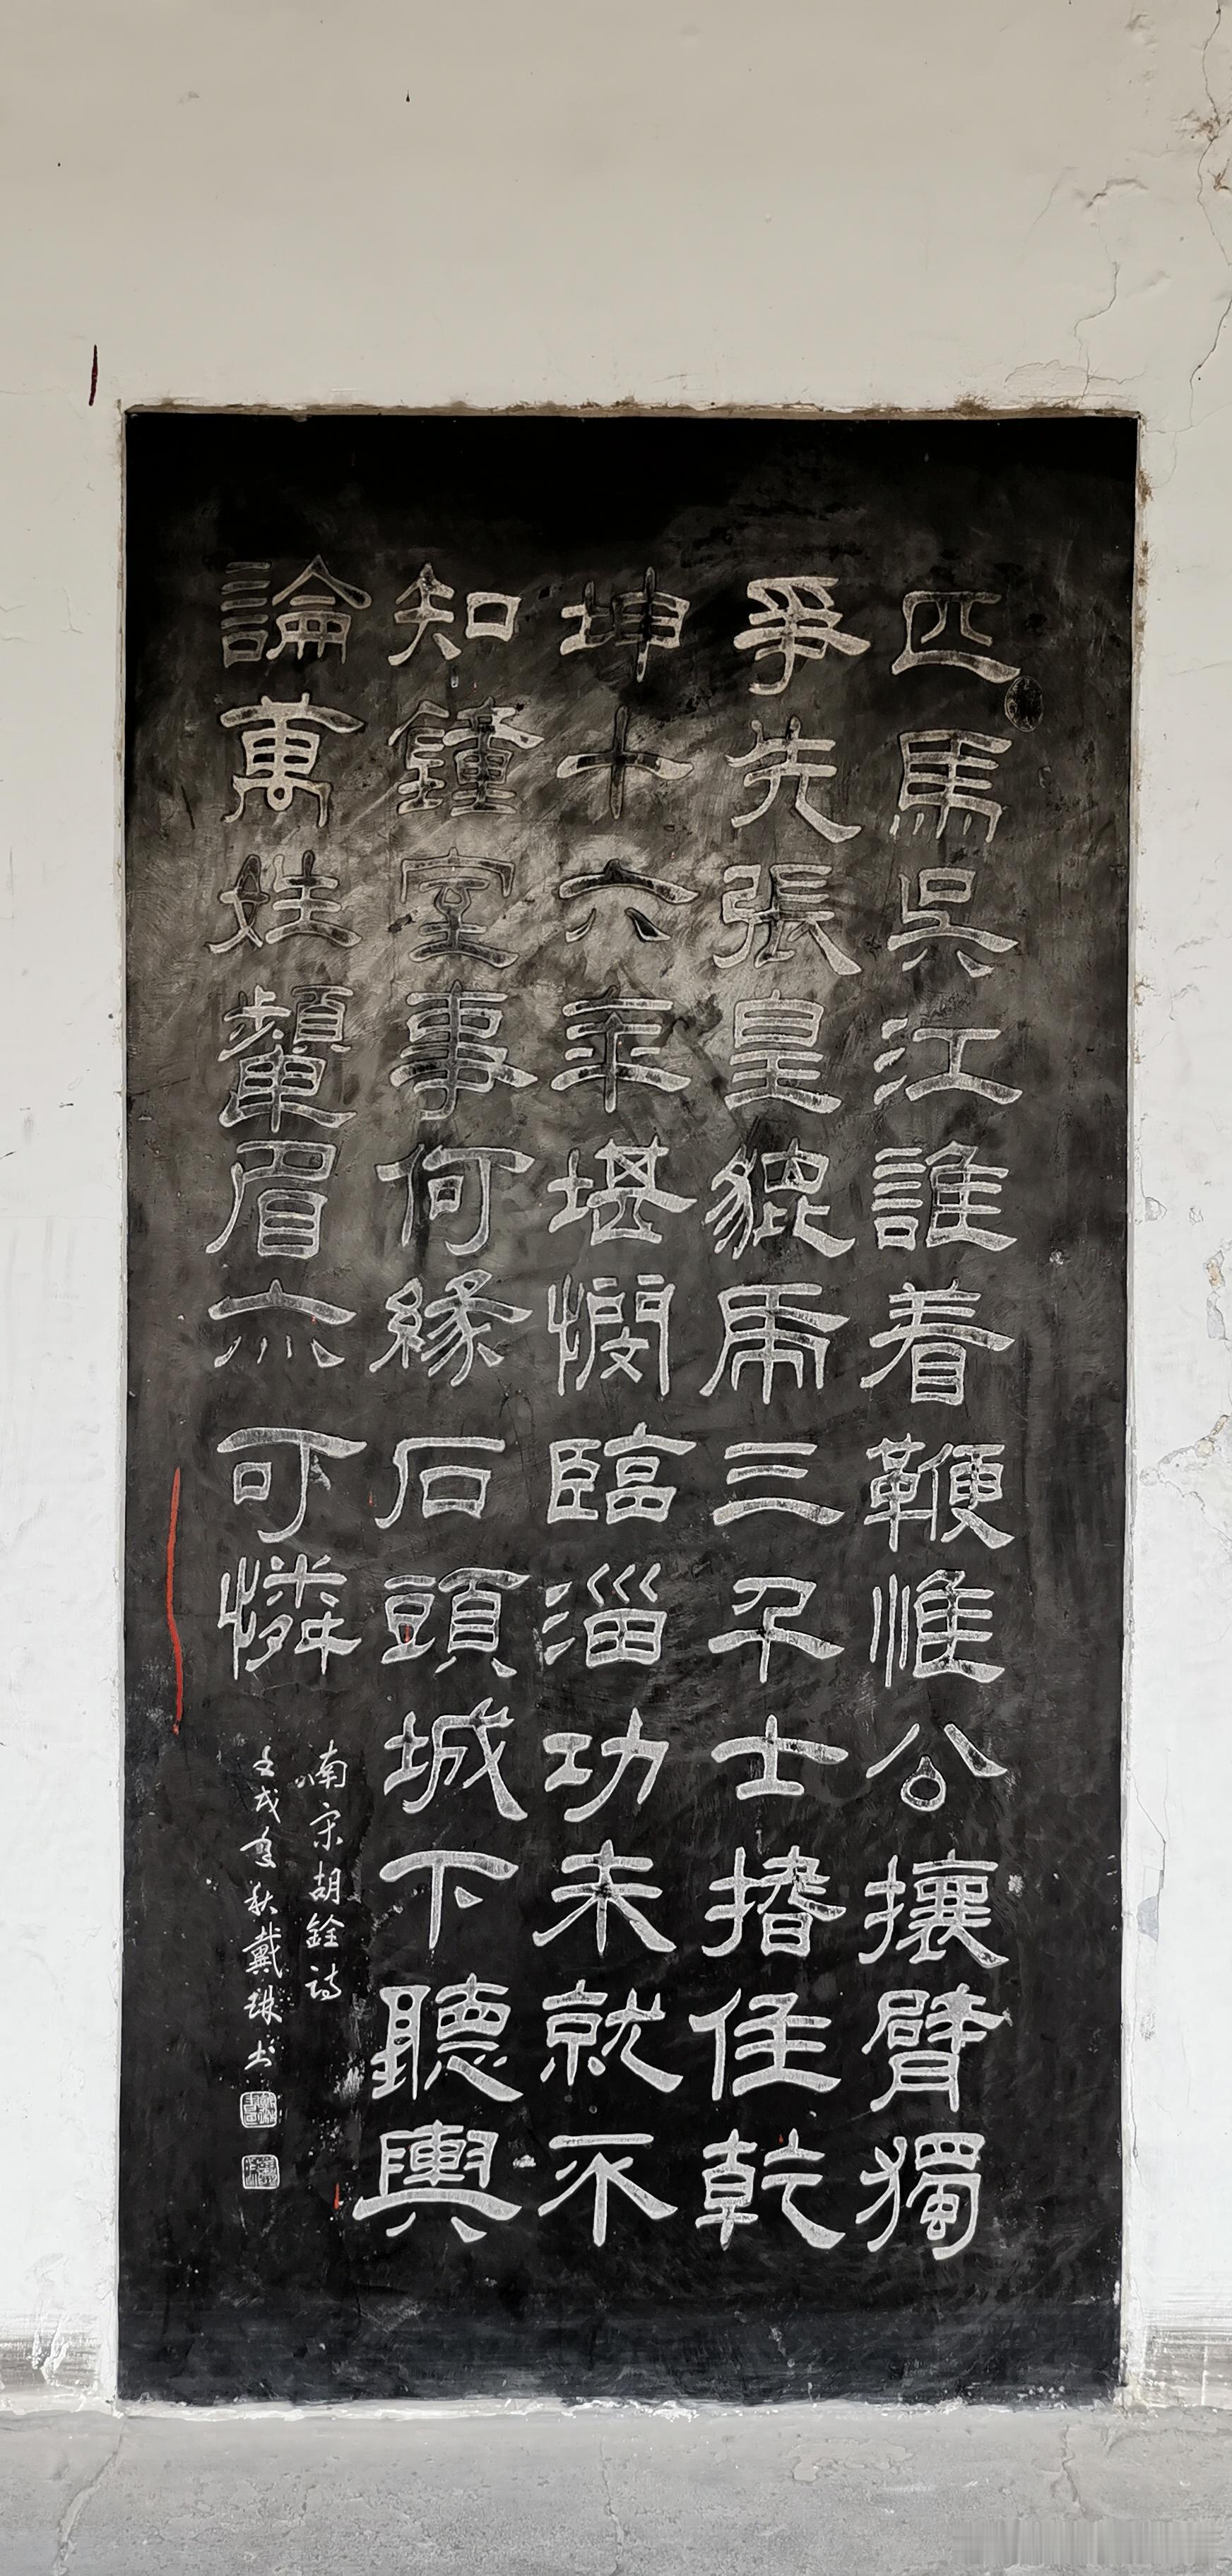 匹馬吳江誰着鞭惟公攘臂獨
爭先張皇貔虎三千士搘住乾
坤十六年堪憫臨淄功未就不
知鍾室事何緣石頭城下聽輿
論萬姓顰眉亦可憐
南宋胡銓詩
壬戌年秋戴琪书